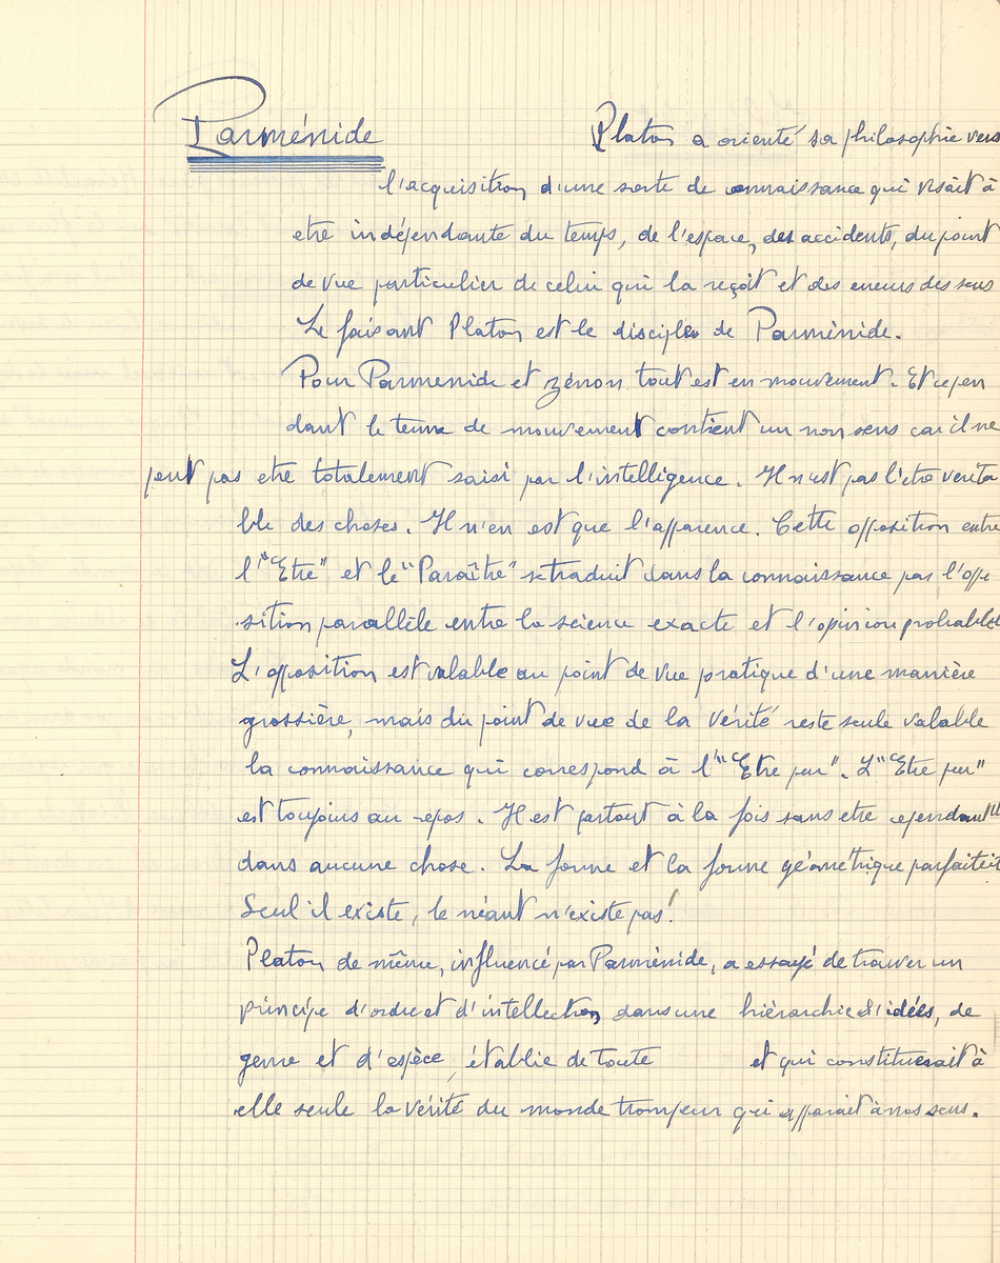 Parménide Platon a orienté sa philosophie vers
l'acquisition d'une sorte de connaissance qui visait à
etre indépendante du temps, de l'espace, des accidents, du point
de vue particulier de celui qui la reçoit et des erreurs des sens
Ce faisant Platon est le disciple de Parménide.
Pour Parmenide et zénon tout est en mouvement. Et cepen
dant le terme de mouvement contient un non sens car il ne
peut pas etre totalement saisi par l'intelligence. Il n'est pas l'etre verita
ble des choses. Il n'en est que l'apparence. Cette opposition entre
l'"Etre" et le "Paraître" se traduit dans la connaissance par l'oppo
sition parallèle entre la science exacte et l'opinion probable
L'opposition est valable au point de vue pratique d'une manière
grossière, mais du point de vue de la vérité reste seule valable
la connaissance qui correspond à l'"Etre pur". L'"Etre pur"
est toujours au repos. Il est partout à la fois sans etre cependant
dans aucune chose. La forme et la forme géométrique parfaite
Seul il existe, le néant n'existe pas!
Platon de même, influencé par Parménide, a essayé de trouver un
principe d'ordre et d'intellection dans une hiérarchie d'idées, de
genre et d'espèce, établie de toute et qui constituerait à
elle seule la vérité du monde trompeur qui apparait à nos sens.